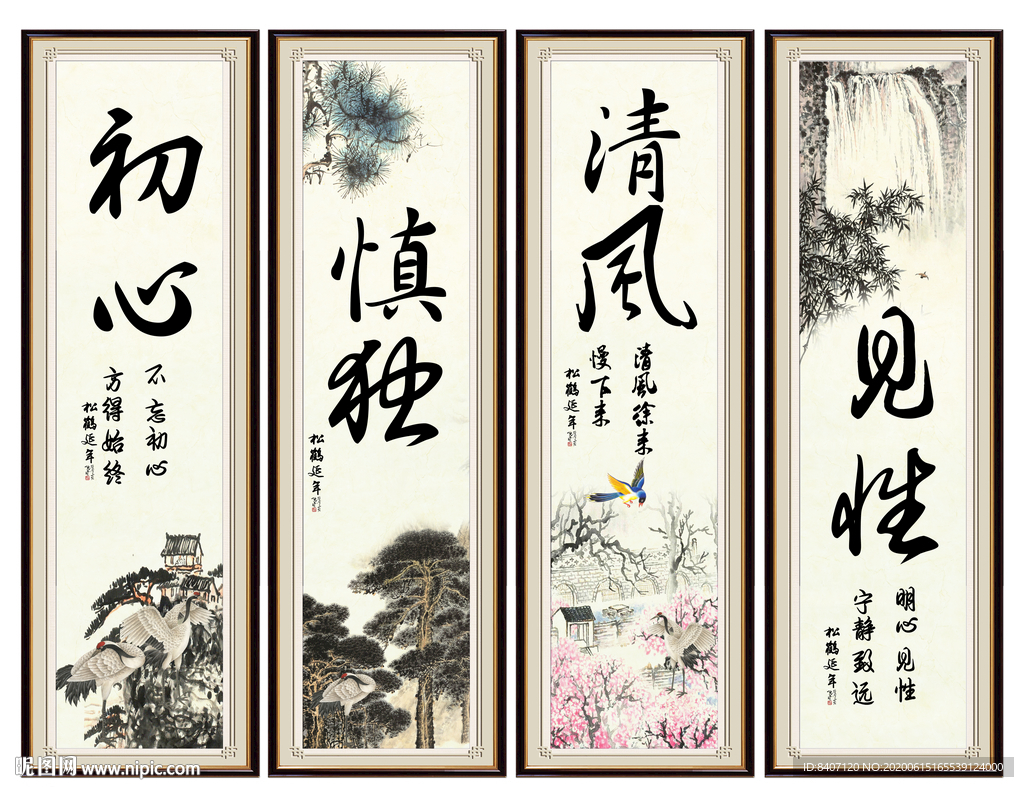 初心
不忘初心
方得始终
松鹤延年
慎独
松鹤延年
清风
清风徐来
慢下来
松鹤延年
见性
明心见性
宁静致远
松鹤延年
昵图网 www.nipic.com
ID:8407120 NO:20200615165539124000